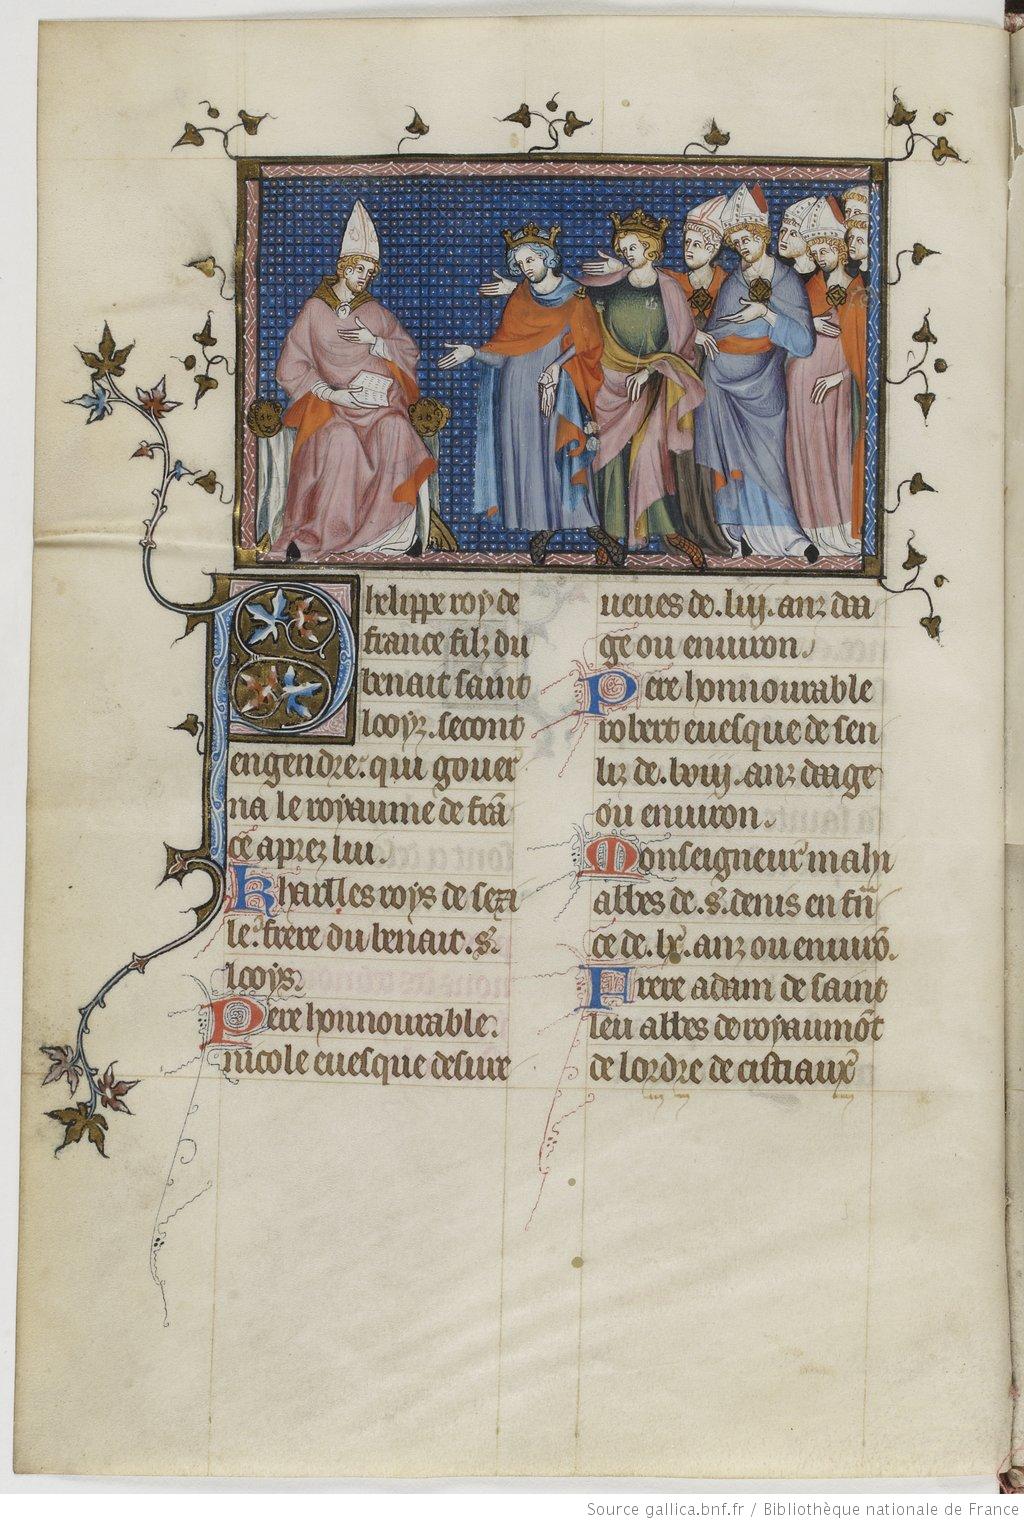 Phelippe roy de
france filz du
benait saint
looys. secont
engendre. qui gouuer
na le royaume de frā
ce aprez lui.
Kharlles roys de sezi
le. frere du benait. s̃.
looys.
Pere honnourable.
nicole euesque deure
ueues de. liij. anz daa
ge ou enuiron.
Pere honnourable
robert euesque de sen
liz de. lviij. anz daage
ou enuiron.
Monseigneur mahi
abbes de. s̃. denis en frā
ce de. lx. anz ou enuirō.
Frere adam de saint
leu abbes de royaumōt
de lordre de cistiaux
Source gallica.bnf.fr / Bibliothèque nationale de France